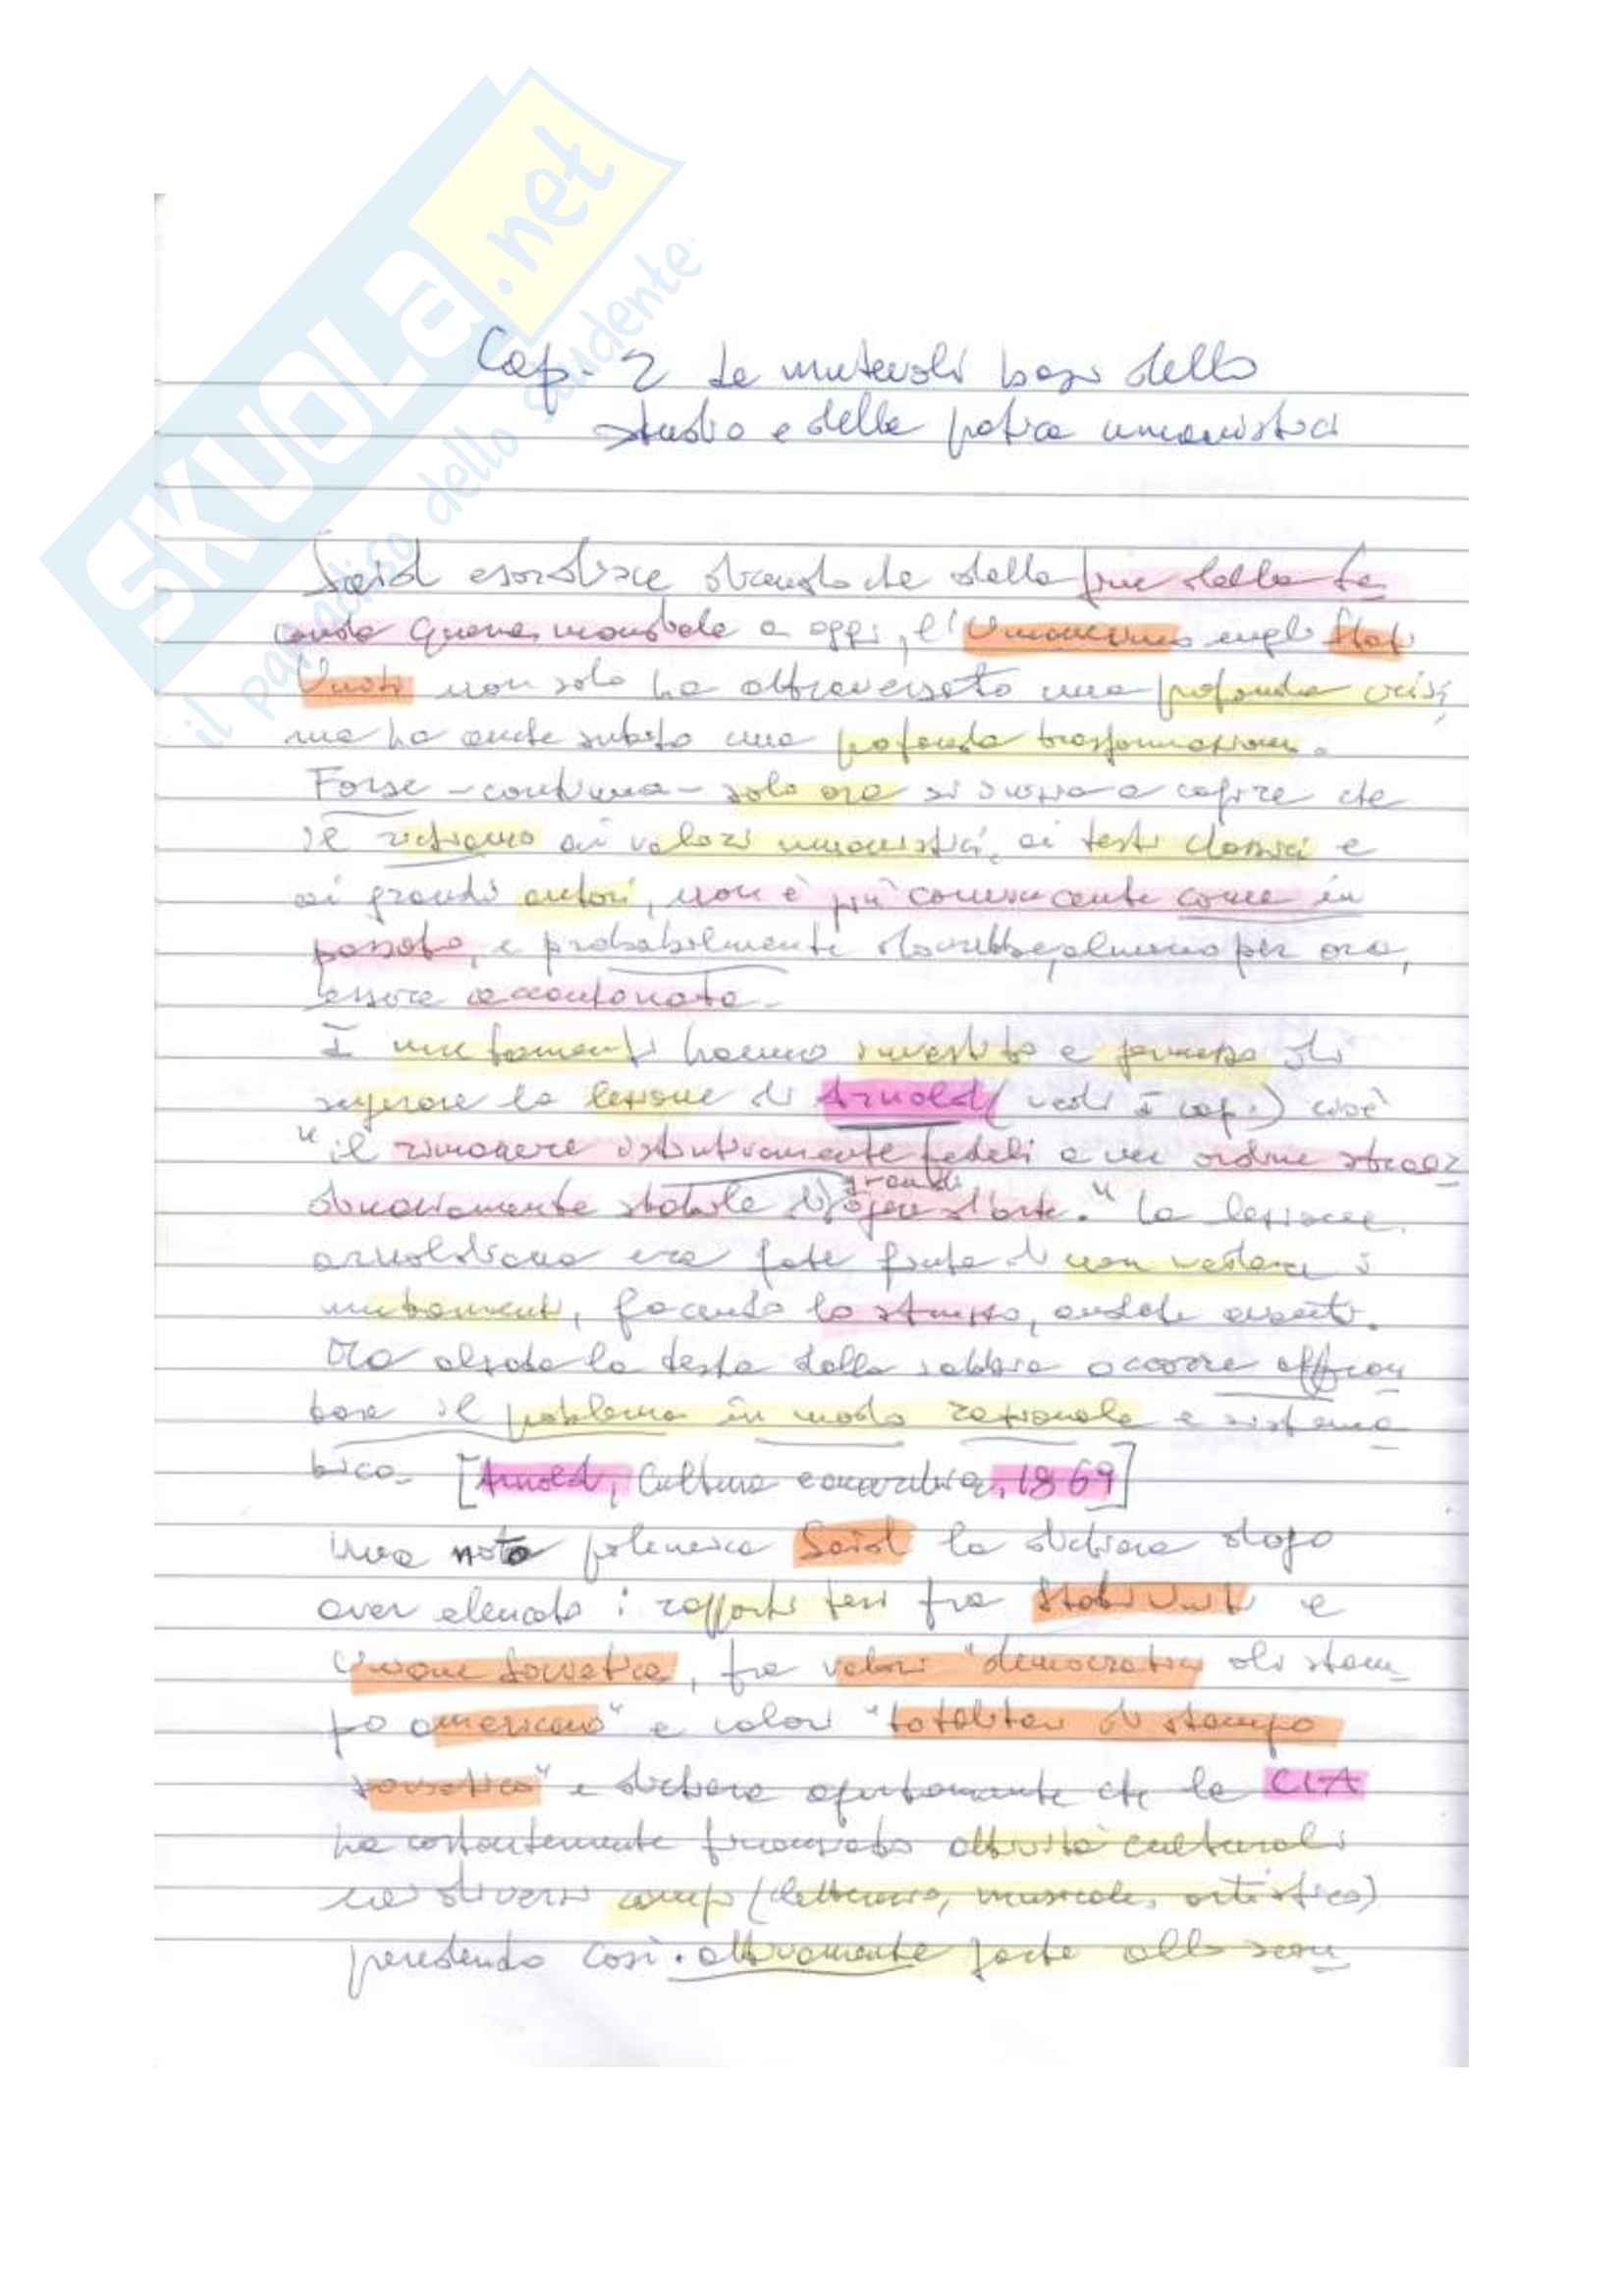 SKUOLA.net
il paradiso dello studente
Cap. 2 Le mutevoli basi dello
studio e della pratica umanistici
Said esordisce dicendo che dalla fine della Se
conda Guerra mondiale a oggi, l'Umanesimo negli Stati
Uniti non solo ha attraversato una profonda crisi,
ma ha anche subito una profonda trasformazione.
Forse - continua - solo ora si inizia a capire che
il richiamo ai valori umanistici, ai testi classici e
ai grandi autori, non è più convincente come in
passato, e probabilmente dovrebbe, almeno per ora,
essere accantonato.
I mutamenti hanno investito e permesso di
superare la lezione di Arnold (vedi I cap.) cioè
"il rimanere istintivamente fedeli a un ordine straor
dinariamente stabile di grandi opere d'arte." La lezione
arnoldiana era fate finta di non vedere i
mutamenti, facendo lo struzzo, andate avanti.
Ma alzata la testa dalla sabbia occorre affron
tare il problema in modo razionale e sistema
tico. [Arnold, Cultura e anarchia, 1869]
Una nota polemica Said la dichiara dopo
aver elencato i rapporti tesi fra Stati Uniti e
Unione Sovietica, fra valori "democratici di stam
po americano" e valori "totalitari di stampo
sovietico" e dichiara apertamente che la CIA
ha costantemente finanziato attività culturali
nei diversi campi (letterario, musicale, artistico)
prendendo così attivamente parte allo scon